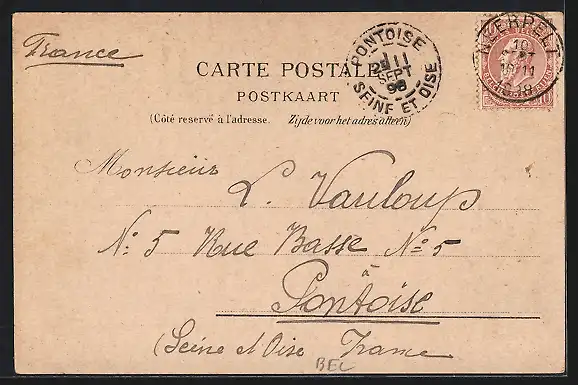 France
CARTE POSTALE
POSTKAART
(Côté reservé à l'adresse. Zijde voor het adres alleen)
PONTOISE
11
SEPT
98
SEINE ET OISE
NEERPELT
10
Monsieur
L. Vauloup
N° 5 Rue Basse N° 5
à
Pontoise
(Seine et Oise France
BEL